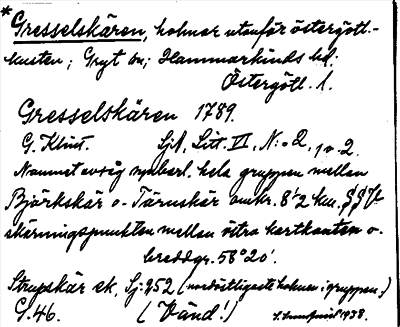 *Gresselskären, holmar utanför östergöt-
kusten; Gryt sn; Hammarkinds hd;
Östergötl. l.
Gresselskären 1789.
G. Klint. Sjk, Litt. VI, N:o 2, 1 o. 2.
Namnet avsåg hela gruppen mellan
Björkskär o. Tärnskär omkr. 8 1/2 km.
skärningspunkten mellen östra kartkanten o.
breddgr. 58° 20'.
Strupskär ek, Sj: 252 (nordöstligaste holmen i gruppen.)
G. 46. (Vänd!) 1938.